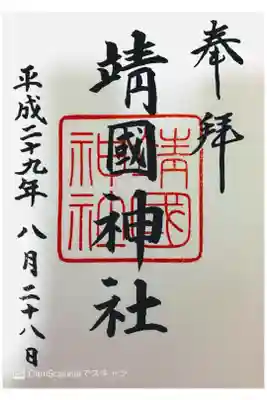 奉拝
靖國神社
靖國神社
平成二十九年 八月二十八日
CamScannerでスキャン